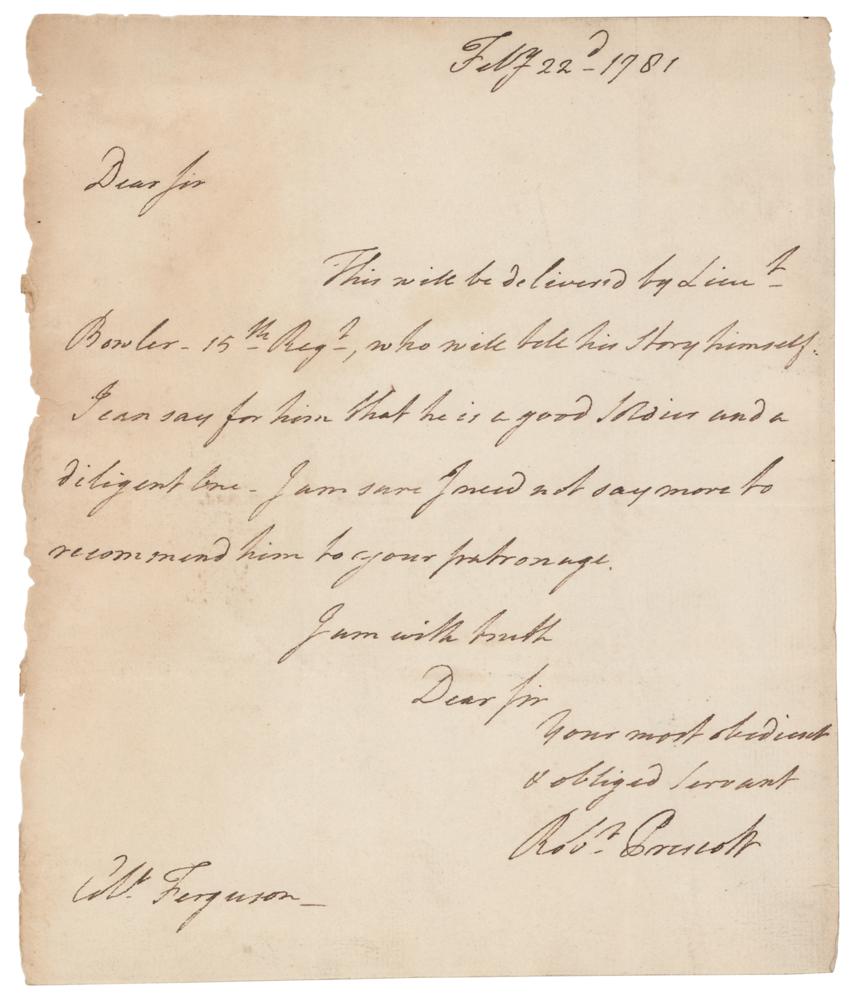 Feby 22d - 1781
Dear Sir
This will be delivered by Lieut
Bowler - 15th Regt, who will tell his Story himself.
I can say for him that he is a good Soldier and a
diligent One - I am sure I need not say more to
recommend him to your patronage.
I am with truth
Dear Sir
Your most obedient
& obliged Servant
Robt. Prescott
Coll. Ferguson -